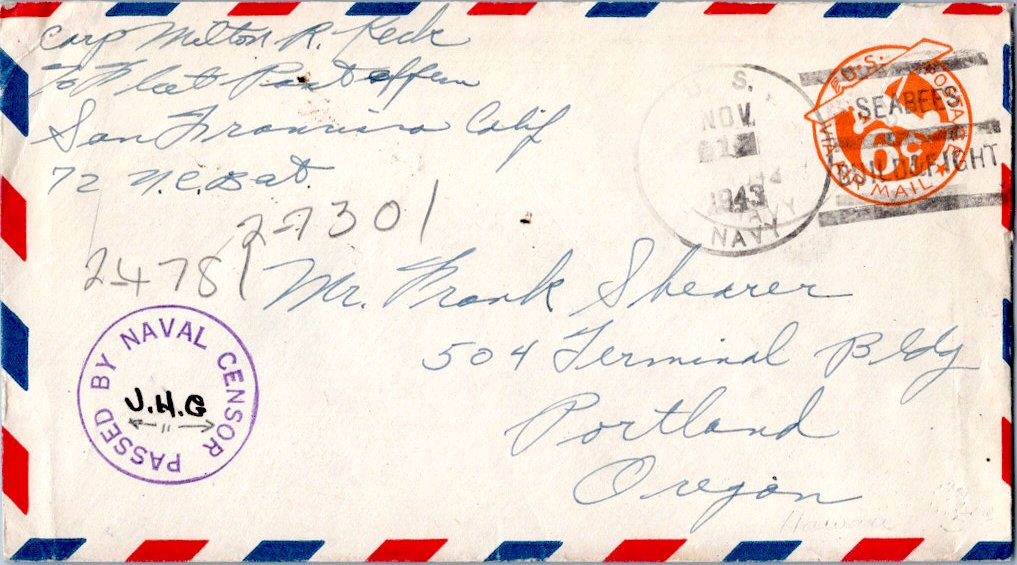 Carp Milton R. Keck
c/o Fleet Post Office
San Francisco Calif
72 N.C. Bat.
27301
24781
Mr. Frank Shearer
504 Terminal Bldg
Portland
Oregon
Hawaii
PASSED BY NAVAL CENSOR
J.H.G
U. S.
NOV
12
1943
NAVY
SEABEES
BUILD&FIGHT
U.S. POSTAGE
6¢
VIA AIR MAIL